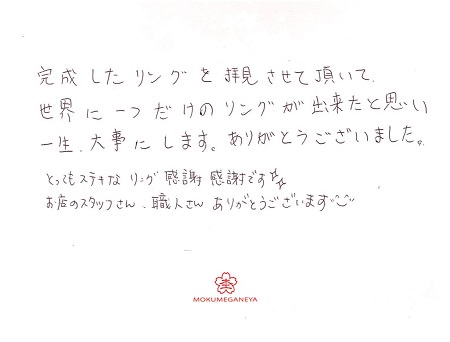 完成したリングを拝見させて頂いて、
世界に一つだけのリングが出来たと思い
一生、大事にします。ありがとうございました。
とってもステキなリング感謝感謝です☆☆
お店のスタッフさん、職人さんありがとうございます
MOKUMEGANEYA